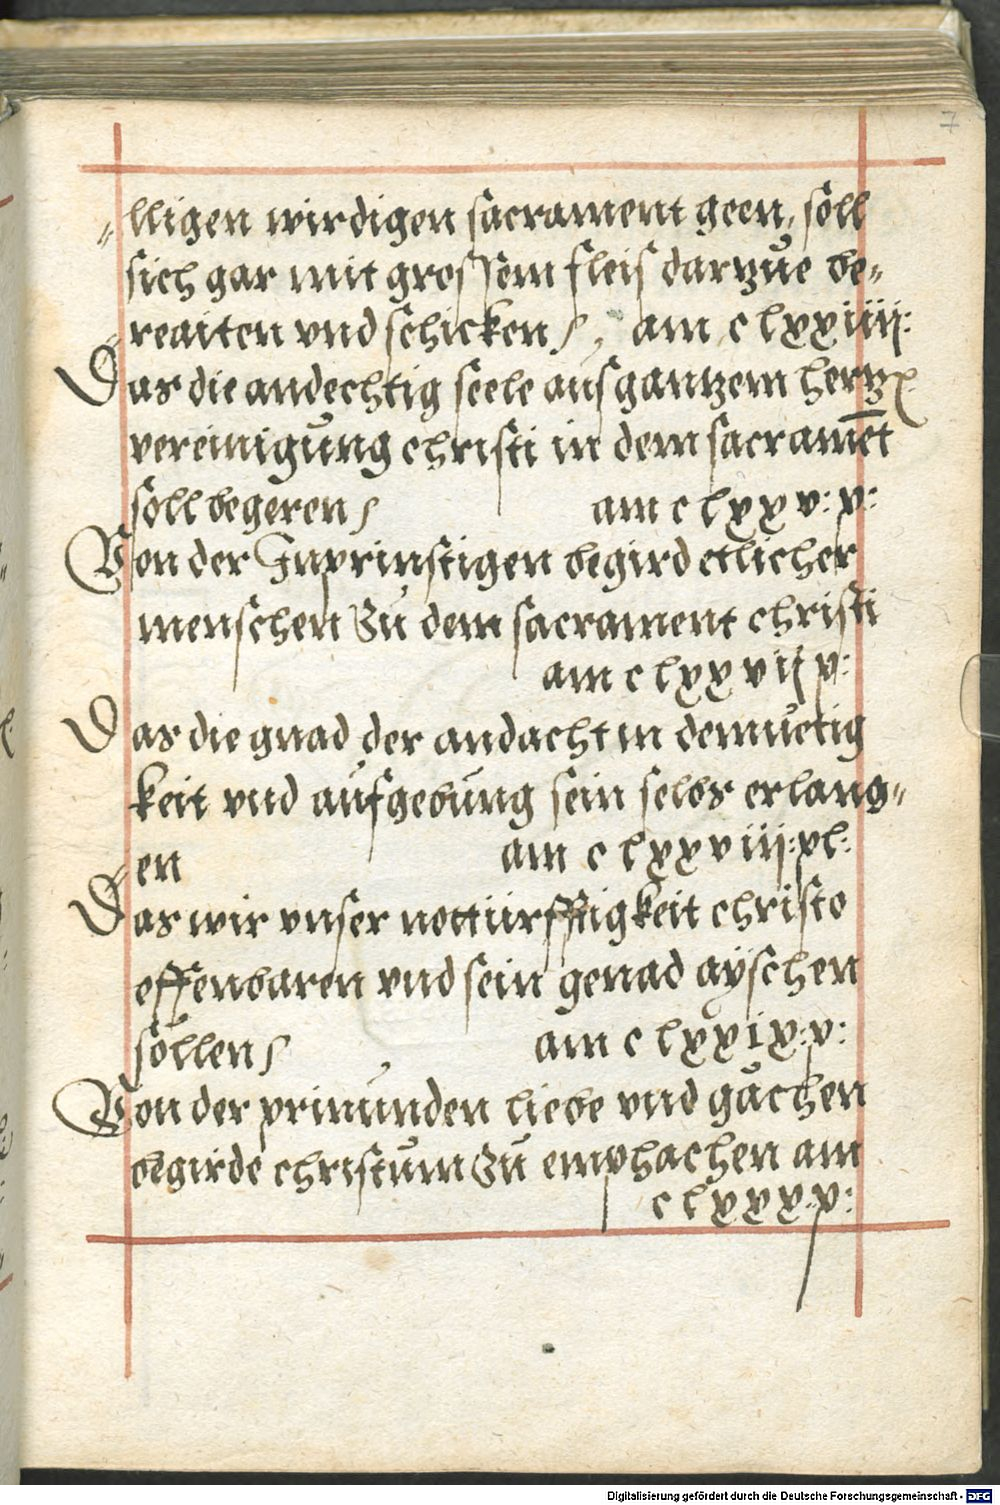 7
lligen wirdigen sacrament geen, söll
sich gar mit grossem fleis darzue be„
reaiten vnd schicken am c lxxiiij:
Das die andechtig seele aus gantzem hertz
vereinigung christi in dem sacramēt
söll begeren am c lxxv: v:
Von der Inprinstigen begird etlicher
menschen Zu dem sacrament christi
am c lxxvij v:
Das die gnad der andacht in demuetig
keit vnd aufgebung sein selbs erlang„
en am c lxxviij: pl:
Das wir vnser nottürfftigkeit christo
effenbaren vnd sein genad aÿschen
söllen am c lxxix: v:
Von der prinunden liebe vnd gächen
begirde christum Zu emphachen am
c lxxx: v:
Digitalisierung gefördert durch die Deutsche Forschungsgemeinschaft - DFG